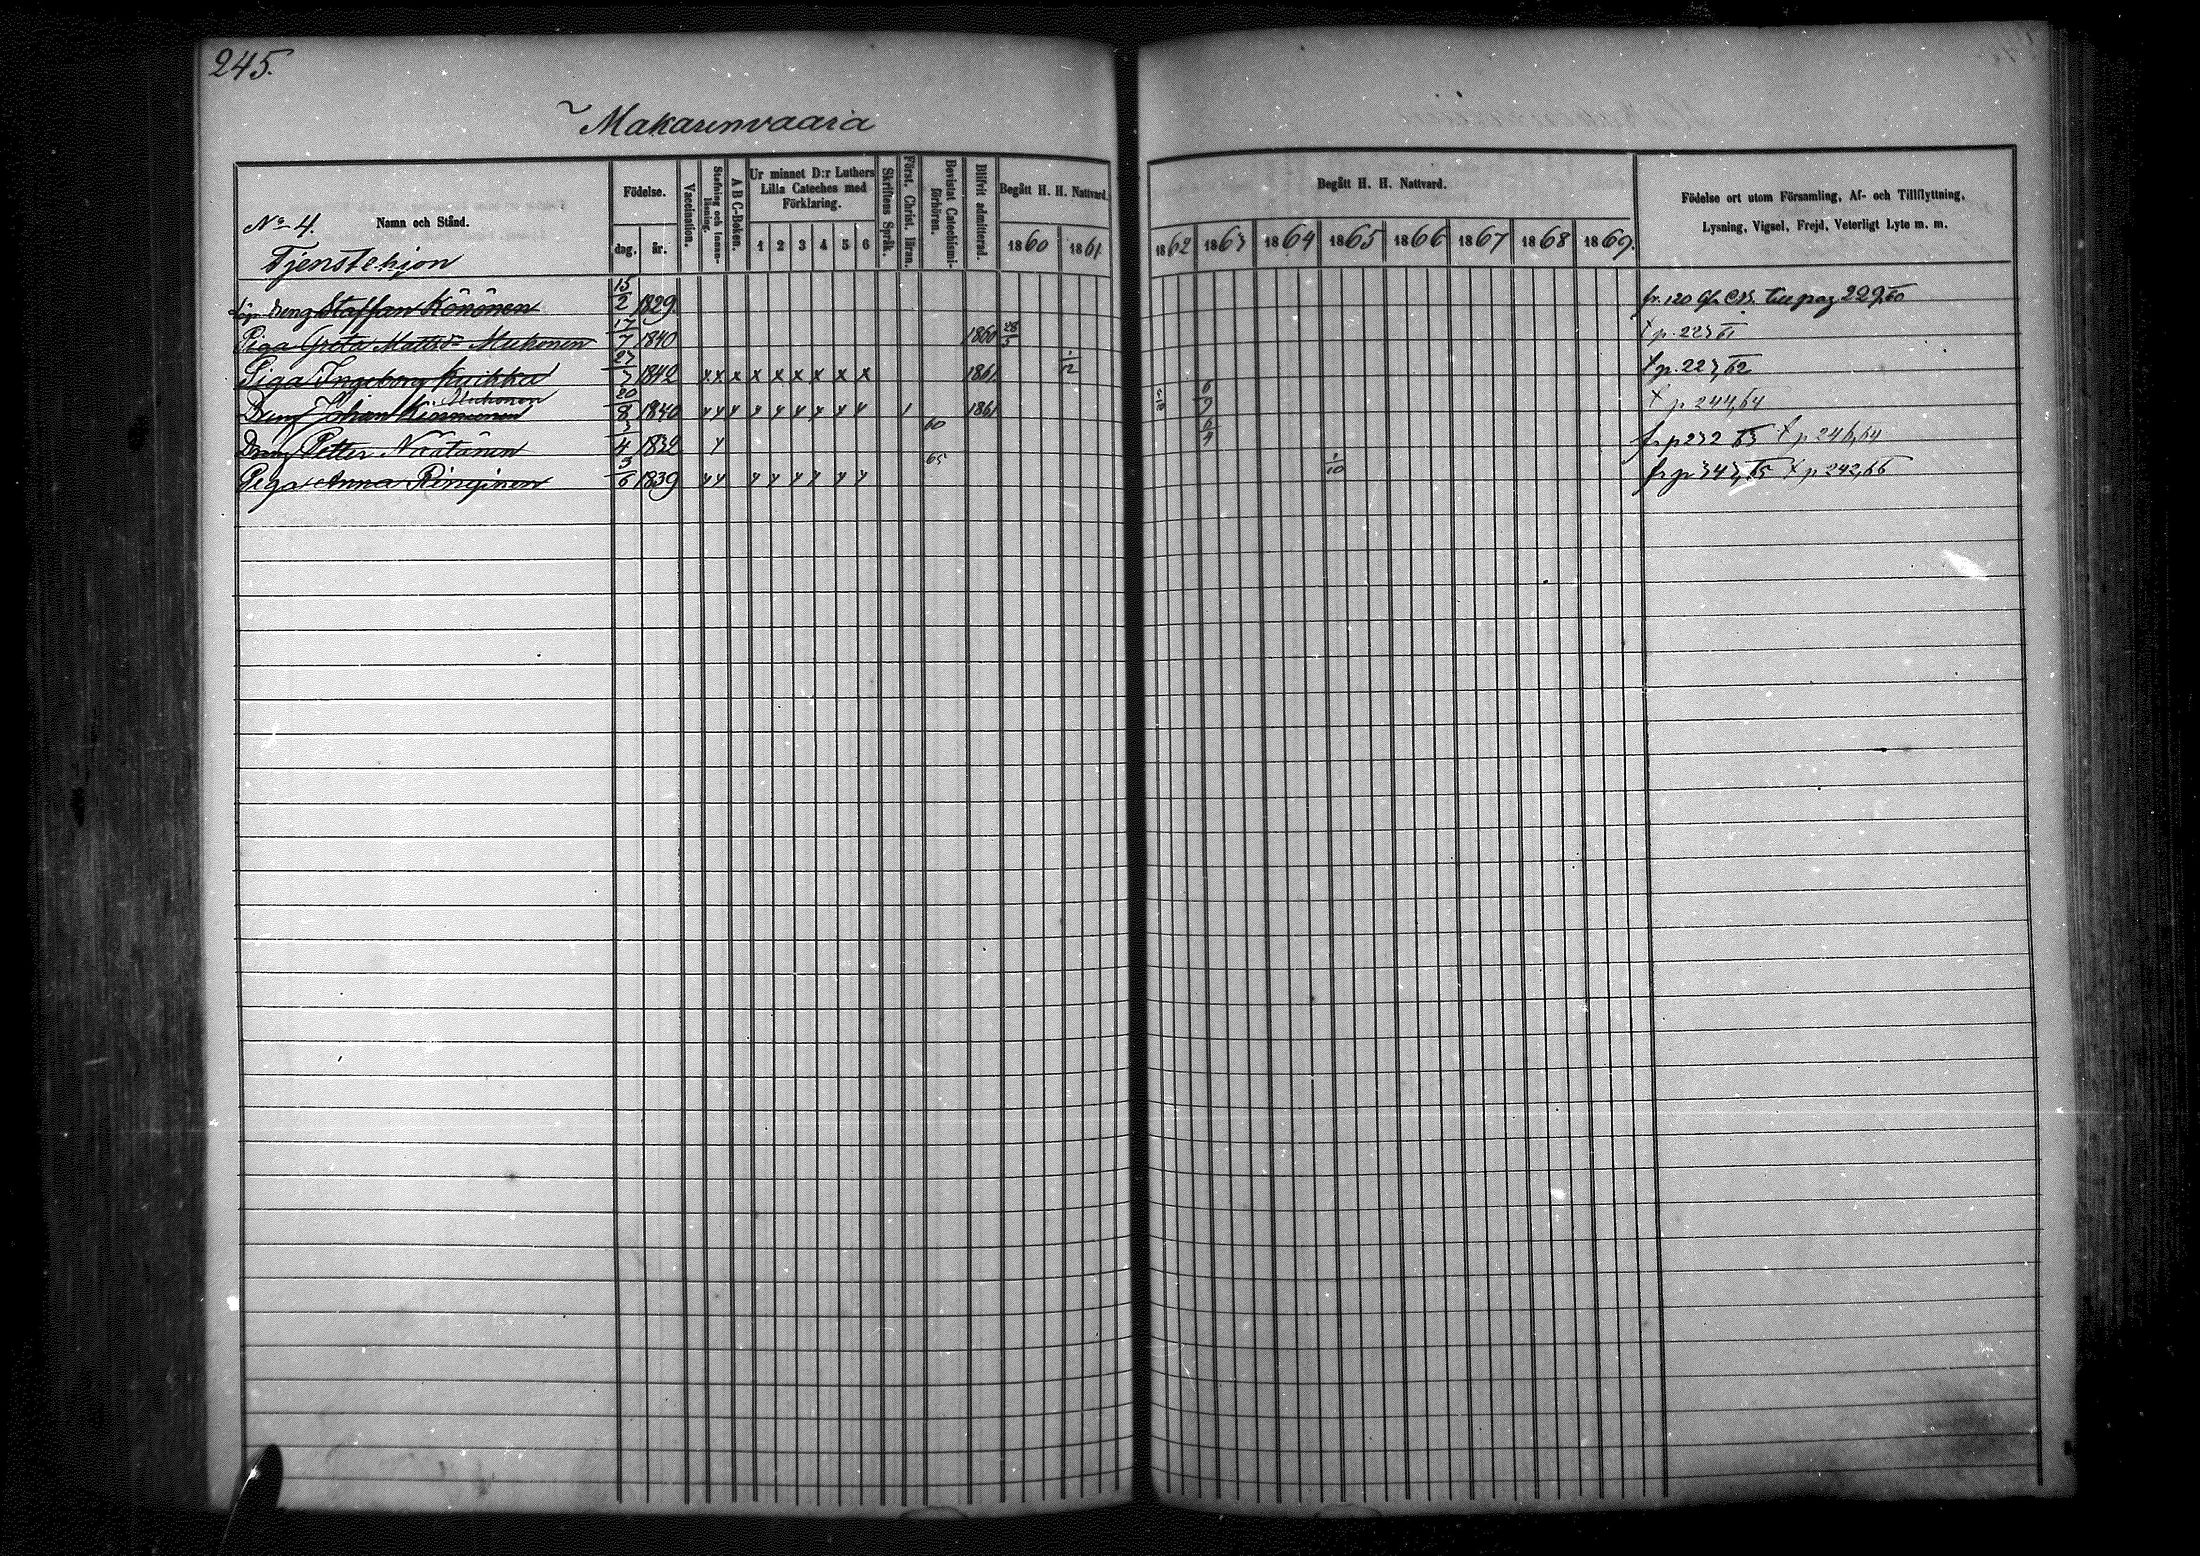 245.
Makarinvaara
No 4. Namn och Stånd.
Tjenstehjon
Födelse.
dag. år.
Vaccination.
Stafning och Innan-läsning.
A B C-Boken.
Ur minnet D:r Luthers Lilla Cateches med Förklaring.
1 2 3 4 5 6
Skriftens Språk.
Först. Christ. läran.
Bevistat Catechismi-förhören.
Blifvit admitterad.
Begått H. H. Nattvard.
1860 1861
Begått H. H. Nattvard.
1862 1863 1864 1865 1866 1867 1868 1869.
Födelse ort utom Församling, Af- och Tillflyttning,
Lysning, Vigsel, Frejd, Veterligt Lyte m. m.
Dreng Staffan Könönen 15/2 1829. fr. 120 Gl. CB. till pag 229,60
Piga Greta Matts dr Mukonen 17/7 1840 1860 28/5 p. 227 61
Piga Ingeborg Kuikka 27/7 1842 x x x x x x x x x 1861 1/12 p. 227,62
Mukonen
Dreng Johan Kinnunen 20/8 1840 1861 6/9 p 244,64
Dreng Petter Nuutinen 3/4 1832 60 6/4 fr p 232 63 p 246,64
Piga Anna Ringinen 3/6 1839 65 1/10 fr p 347,65 p 242,66